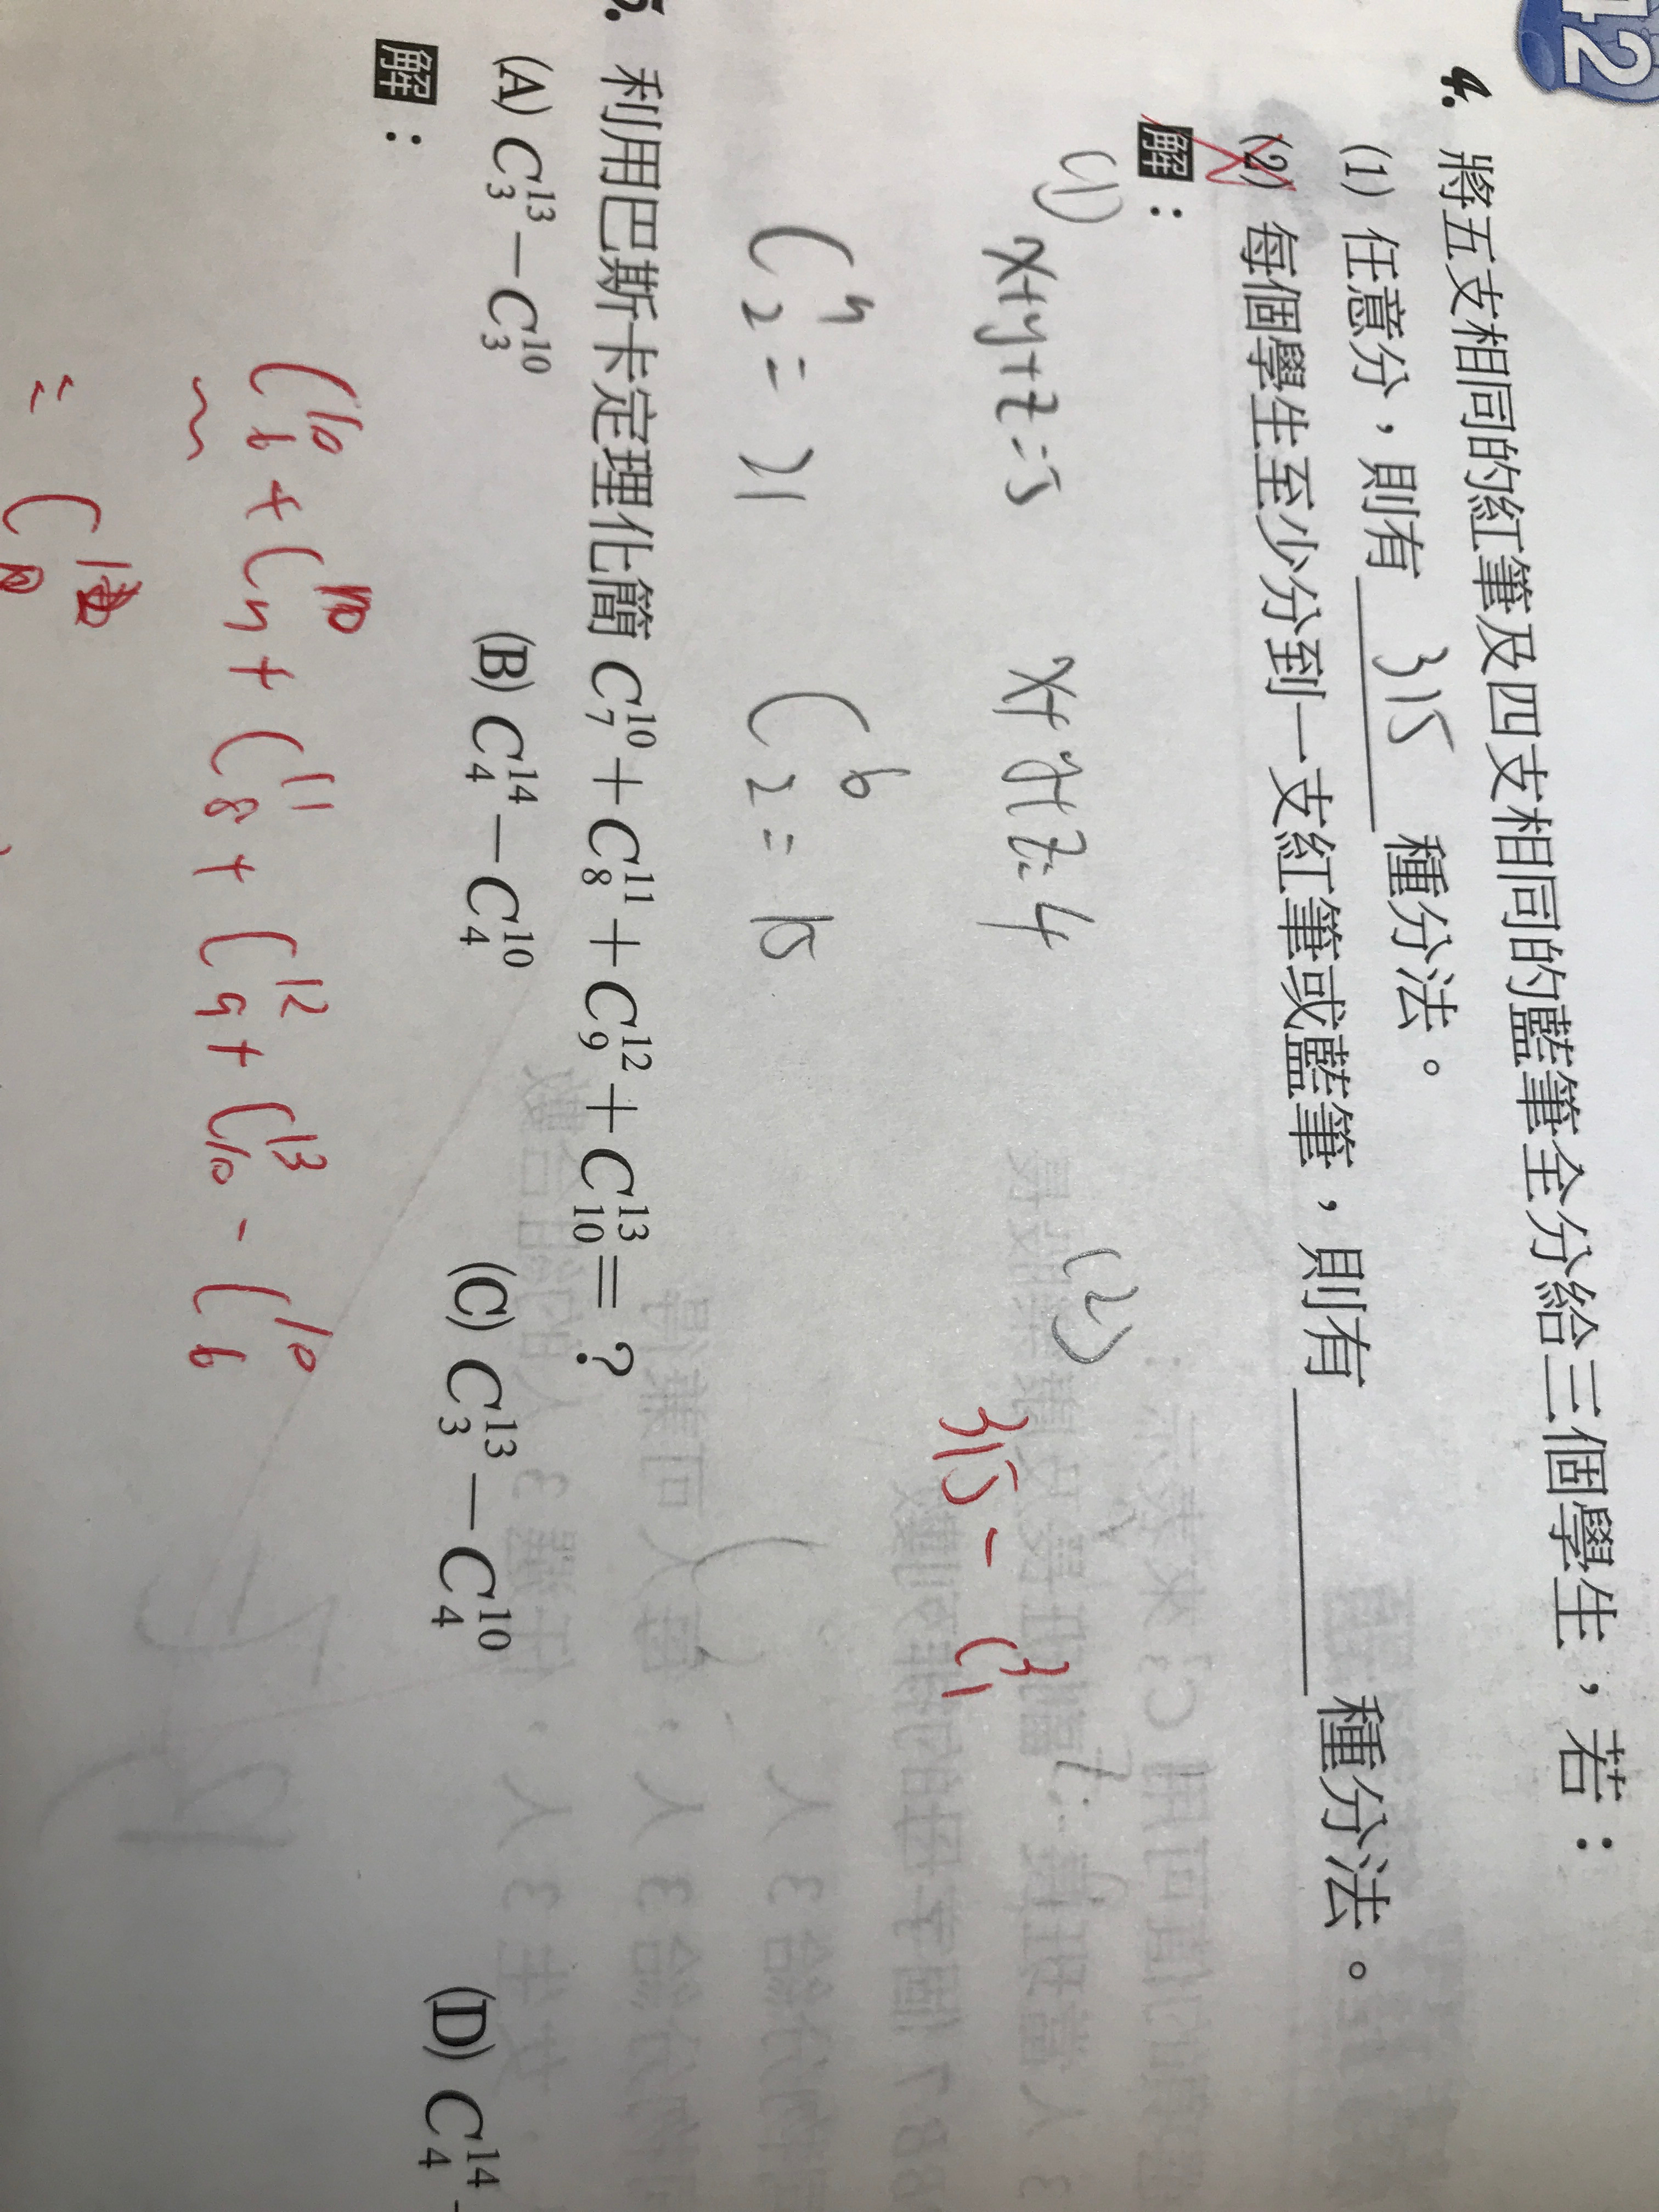 12
4. 將五支相同的紅筆及四支相同的藍筆全分給三個學生，若：
(1) 任意分，則有 315 種分法。
(2) 每個學生至少分到一支紅筆或藍筆，則有______種分法。
解：
(1) (2)
x+y+z=5 x+y+z=4 315 - C³₁
C⁷₂ = 21 C⁶₂ = 15
5. 利用巴斯卡定理化簡 C¹⁰₇ + C¹¹₈ + C¹²₉ + C¹³₁₀ = ?
(A) C¹³₃ − C¹⁰₃ (B) C¹⁴₄ − C¹⁰₄ (C) C¹³₃ − C¹⁰₄ (D) C¹⁴₄ −
解：
C¹⁰₆ + C¹⁰₇ + C¹¹₈ + C¹²₉ + C¹³₁₀ - C¹⁰₆
= C